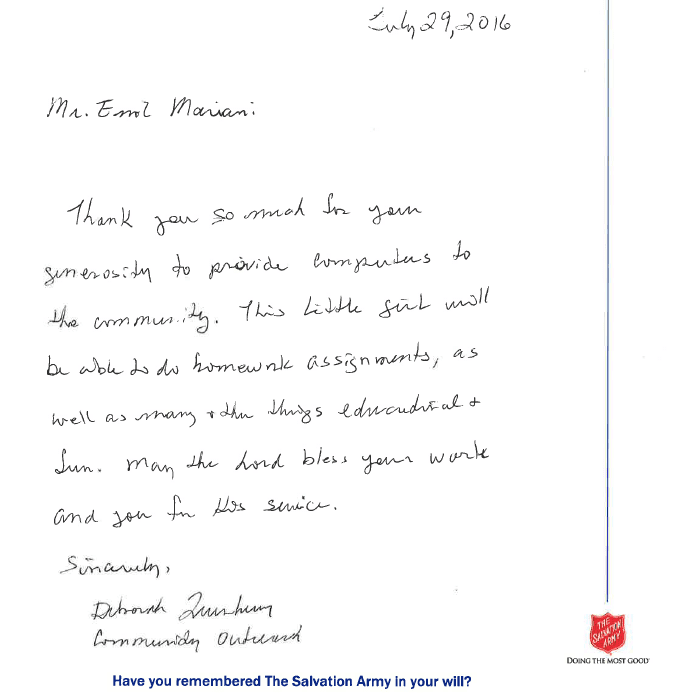 July 29, 2016
Mr. Errol Mariani
Thank you so much for your
generosity to provide computers to
the community. This little girl will
be able to do homework assignments, as
well as many other things educational +
fun. May the Lord bless your work
and you for His service.
Sincerely,
Deborah
Community Outreach
THE
SALVATION
ARMY
DOING THE MOST GOOD
Have you remembered The Salvation Army in your will?